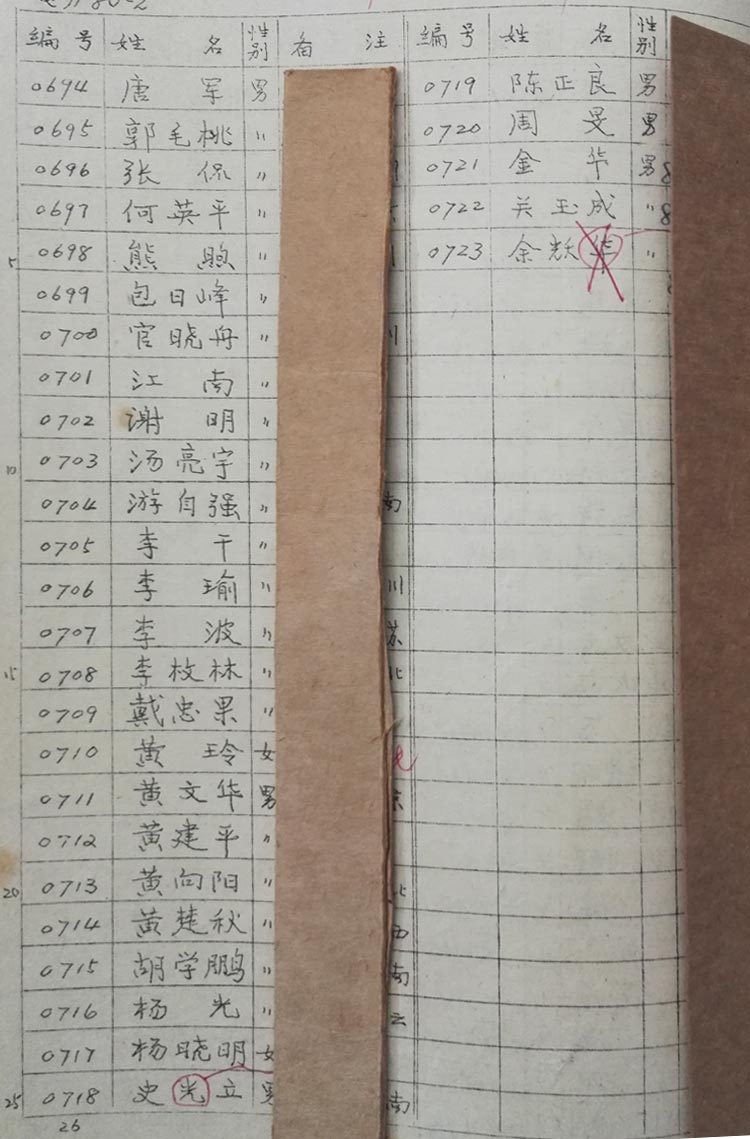 80-2
編号 姓名 性别 备注
0694 唐军 男
0695 郭毛桃 〃
0696 张侃 〃
0697 何英平 〃
5 0698 熊煦 〃
0699 包日峰 〃
0700 官晓舟 〃 川
0701 江南 〃
0702 谢明 〃
10 0703 汤亮宇 〃
0704 游自强 〃 南
0705 李干 〃
0706 李瑜 〃 川
0707 李波 〃 苏
15 0708 李枚林 〃 北
0709 戴忠果 〃
0710 黄玲 女
0711 黄文华 男 京
0712 黄建平 〃
20 0713 黄向阳 〃 北
0714 黄楚秋 〃 西
0715 胡学鹏 〃 南
0716 杨光 〃 云
0717 杨晓明 女
25 0718 史光立 男 南
26
編号 姓名 性别
0719 陈正良 男
0720 周旻 男
0721 金华 男 8
0722 关玉成 〃 8
0723 余 华 〃